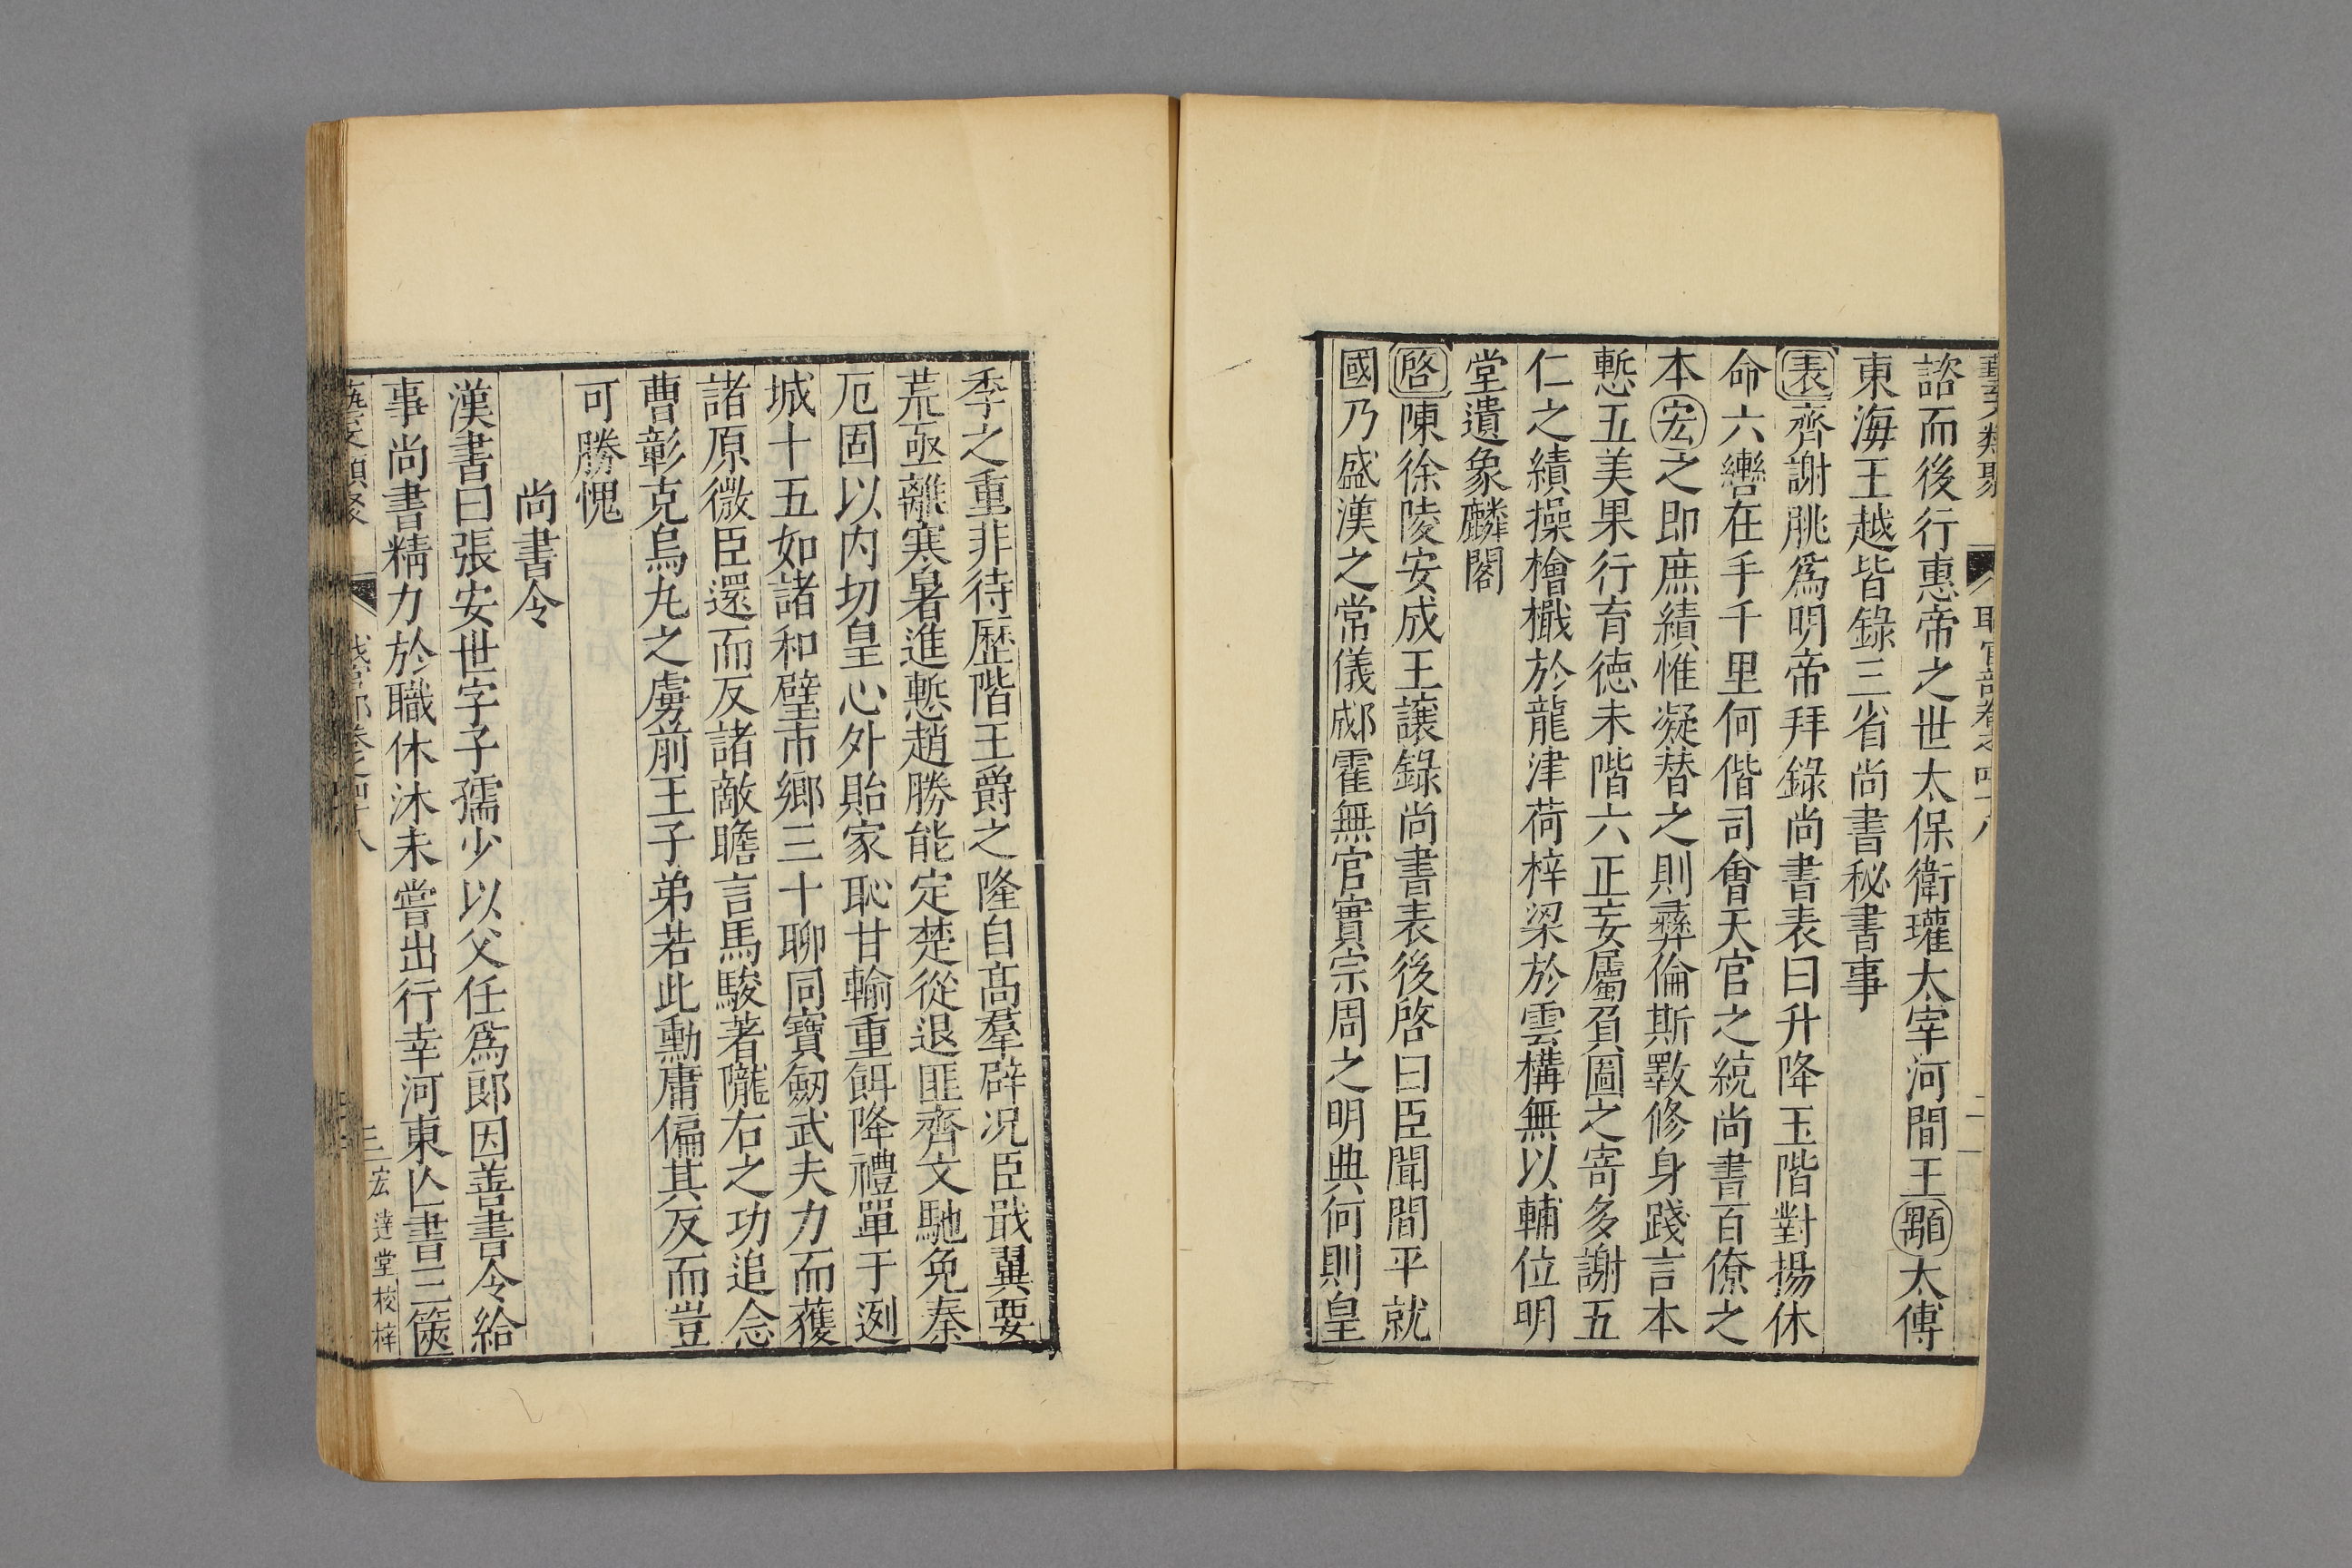 諮而後行惠帝之世太保衛瓘太宰河間王顒太傅
東海王越皆錄三省尚書秘書事
表齊謝朓爲明帝拜錄尚書表曰升降玉階對揚休
命六轡在手千里何偕司會天官之統尚書百僚之
本宏之即庶績惟凝替之則彛倫斯斁修身踐言本
慙五美果行育德未階六正妄屬負圖之寄多謝五
仁之績操檜檝於龍津荷梓梁於雲構無以輔位明
堂遺象麟閣
啓陳徐陵安成王讓錄尚書表後啓曰臣聞間平就
國乃盛漢之常儀郕霍無官實宗周之明典何則皇
季之重非待歷階王爵之隆自高羣辟况臣戢翼要
荒亟離寒暑進慙趙勝能定楚從退匪齊文馳免秦
厄固以内切皇心外貽家恥甘輸重餌降禮單于迾
城十五如諸和璧市鄉三十聊同寶劒武夫力而獲
諸原微臣還而反諸敵瞻言馬駿著隴右之功追念
曹彰克烏丸之虜前王子弟若此勳庸偏其反而豈
可勝愧
尚書令
漢書曰張安世字子孺少以父任爲郎因善書令給
事尚書精力於職休沐未嘗出行幸河東亾書三篋
三 宏達堂校梓